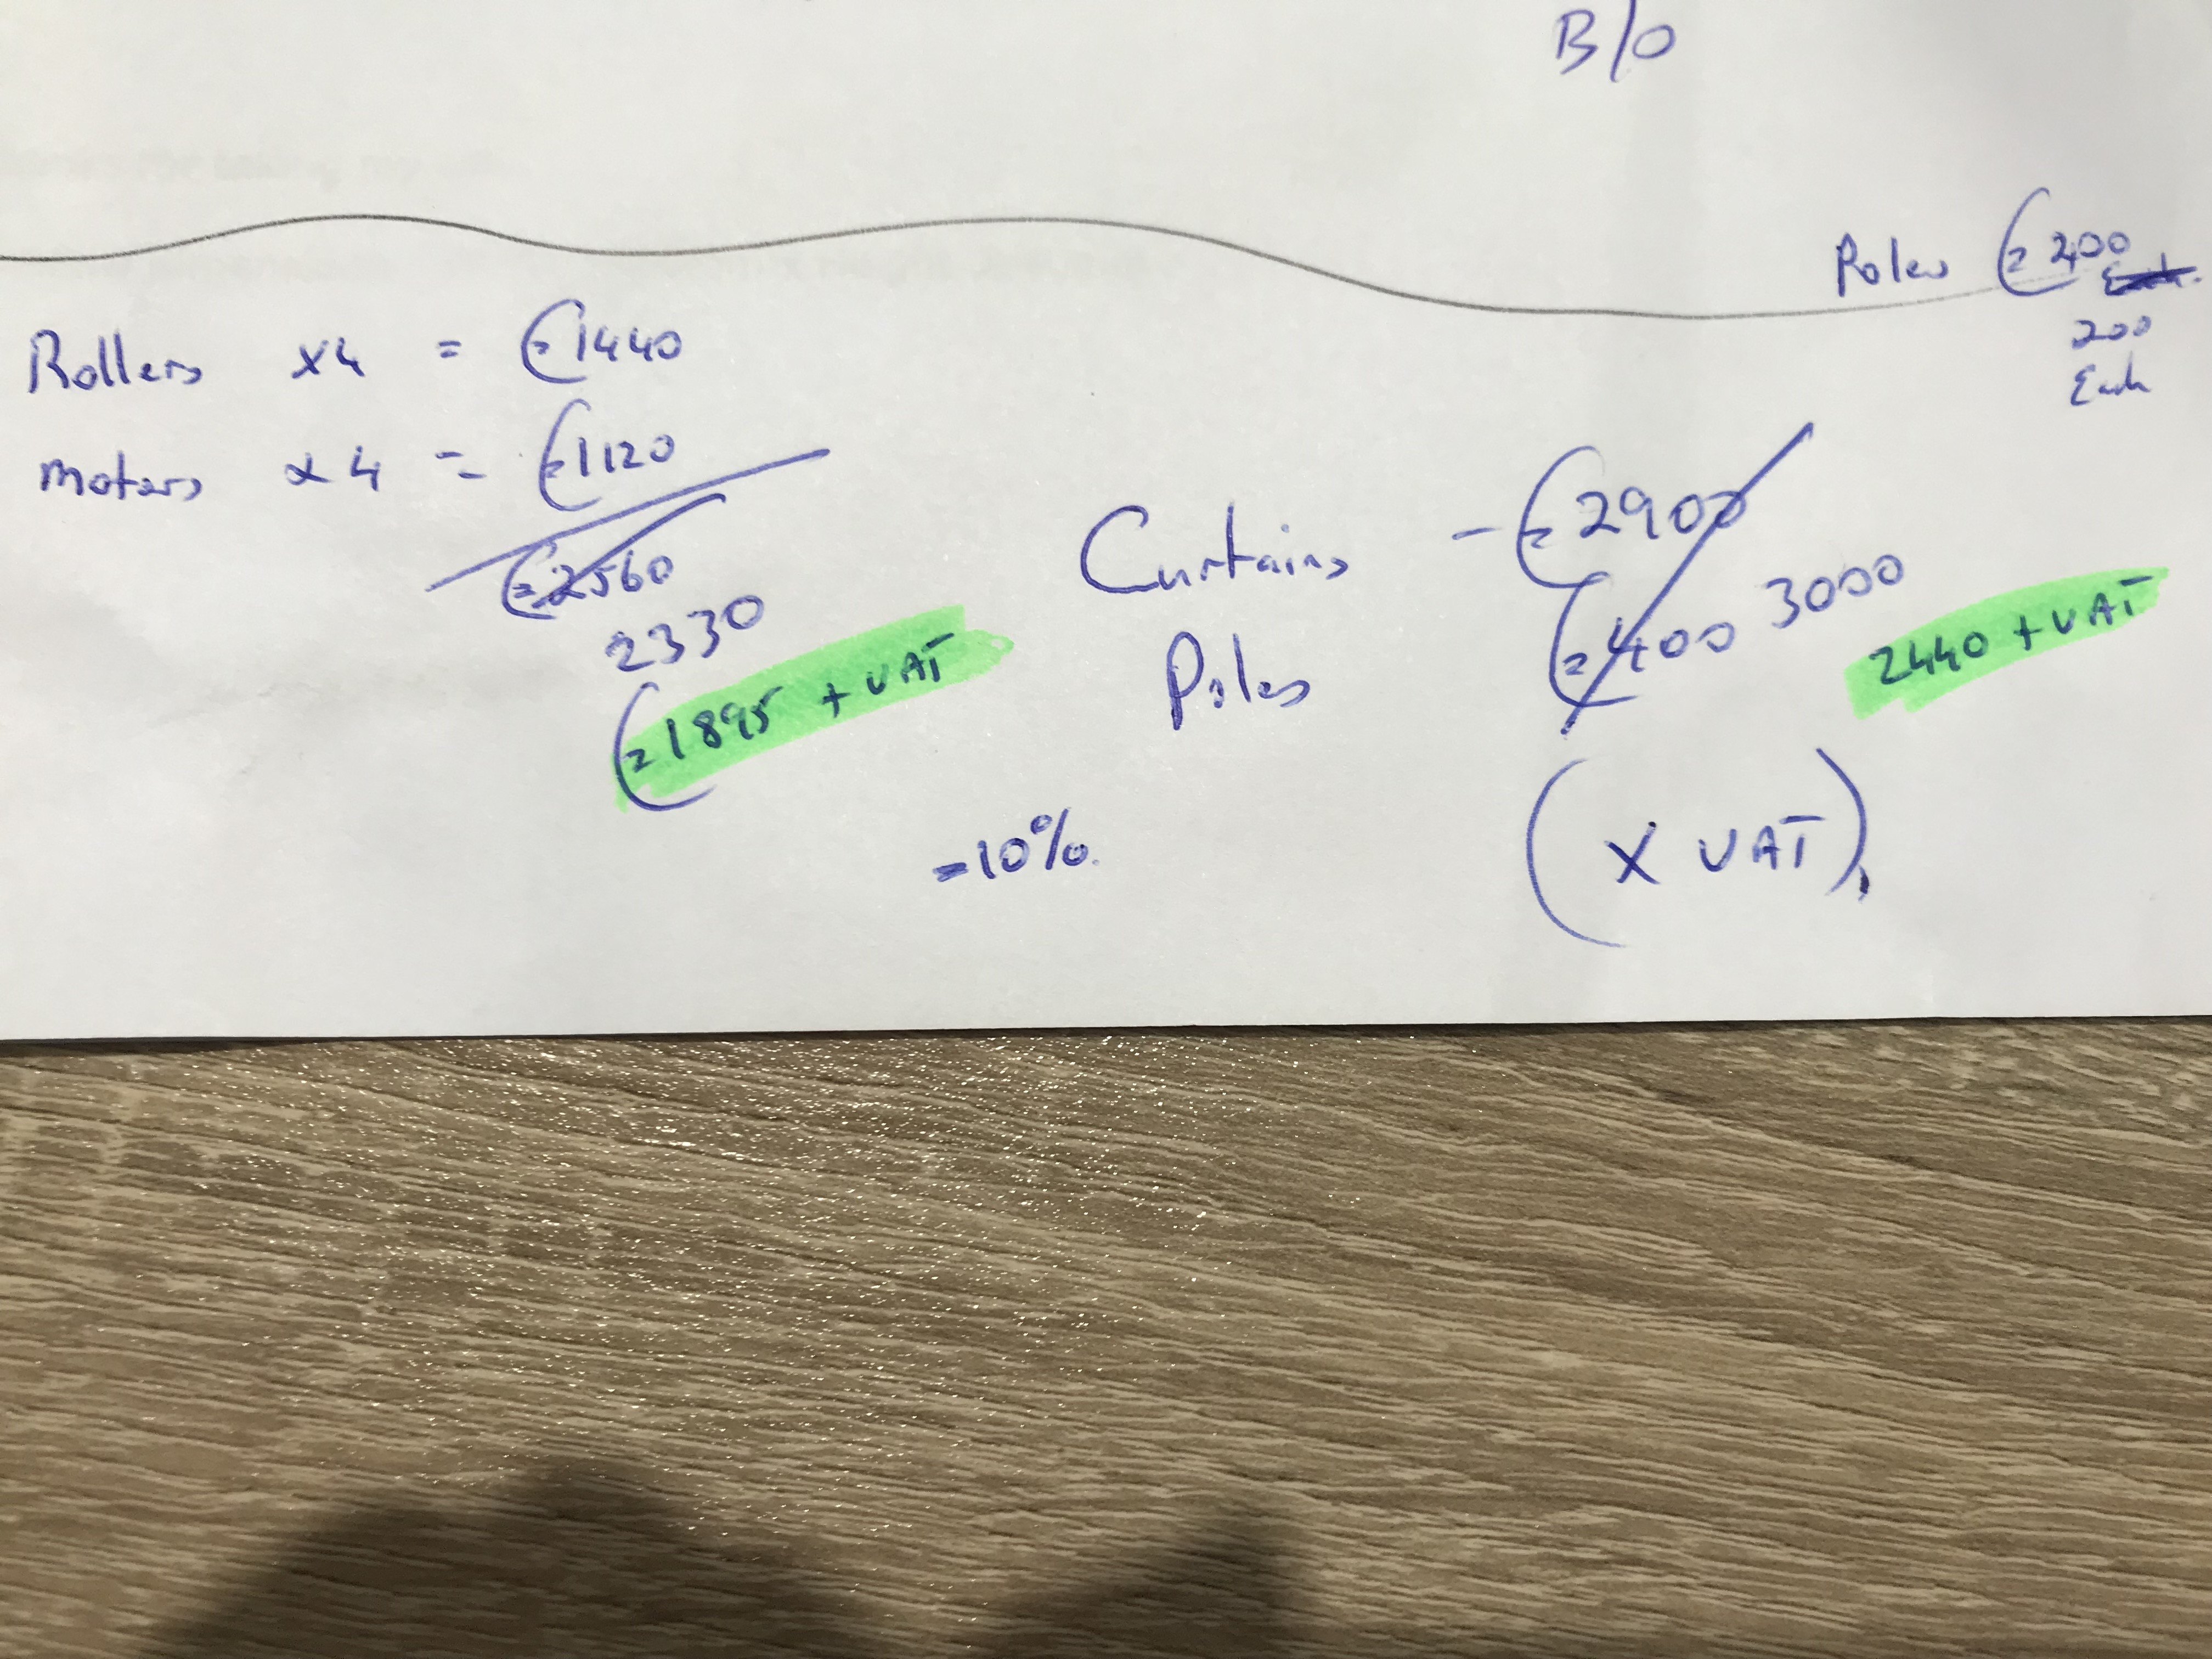 B/O
Poles €200
200
Each
Rollers x4 = €1440
motors x4 = €1120
€2560
2330
€1895 + VAT
Curtains - €2900
Poles €400 3000
2440 + VAT
-10%.
(X VAT)